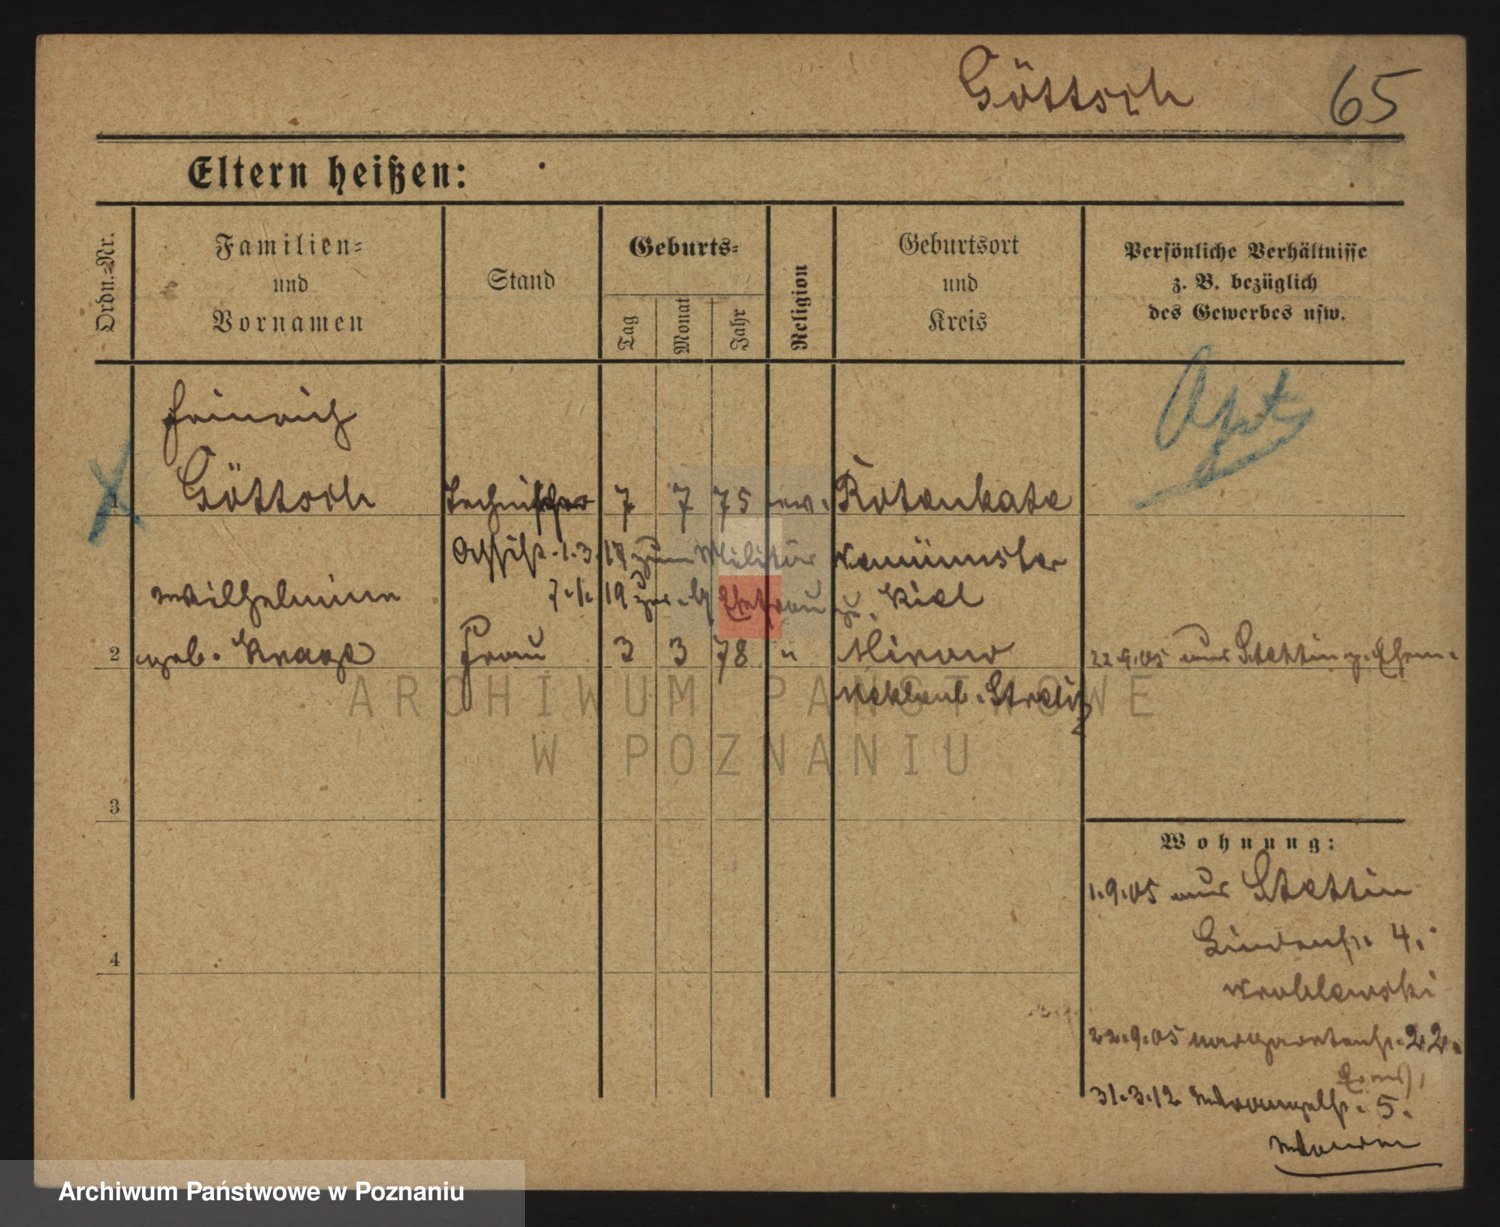 Göttsch 65
Eltern heißen:
Ordn.-Nr.
Familien-
und
Vornamen
Stand
Geburts-
Tag
Monat
Jahr
Religion
Geburtsort
und
Kreis
Persönliche Verhältnisse
z. B. bezüglich
des Gewerbes usw.
Heinrich
1 Göttsch Technischer 7 7 75 ev. Rotenkate
Assist. 1.3.17 zum Militär Neumünster
Wilhelmine 7.1.19 zur. Kiel
2 geb. Frau 3 3 78 " Mirow 22.9.05 aus Stettin z. Ehem.
Meklenb. Strelitz
ARCHIWUM PAŃSTWOWE
W POZNANIU
3
4
Wohnung:
1.9.05 aus Stettin
Lindenstr. 4.
Wroblewski
22.9.05 Margaretenstr. 22.
31.3.12 Wrangelstr. 5.
Archiwum Państwowe w Poznaniu